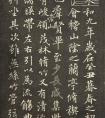 永和九年歲在癸丑暮春之初
會于會稽山陰之蘭亭脩禊
事也羣賢畢至少長咸集此
地有崇山峻領茂林脩竹又有清流
激湍暎帶左右引以為流觴
曲水列坐其次雖無絲竹管弦